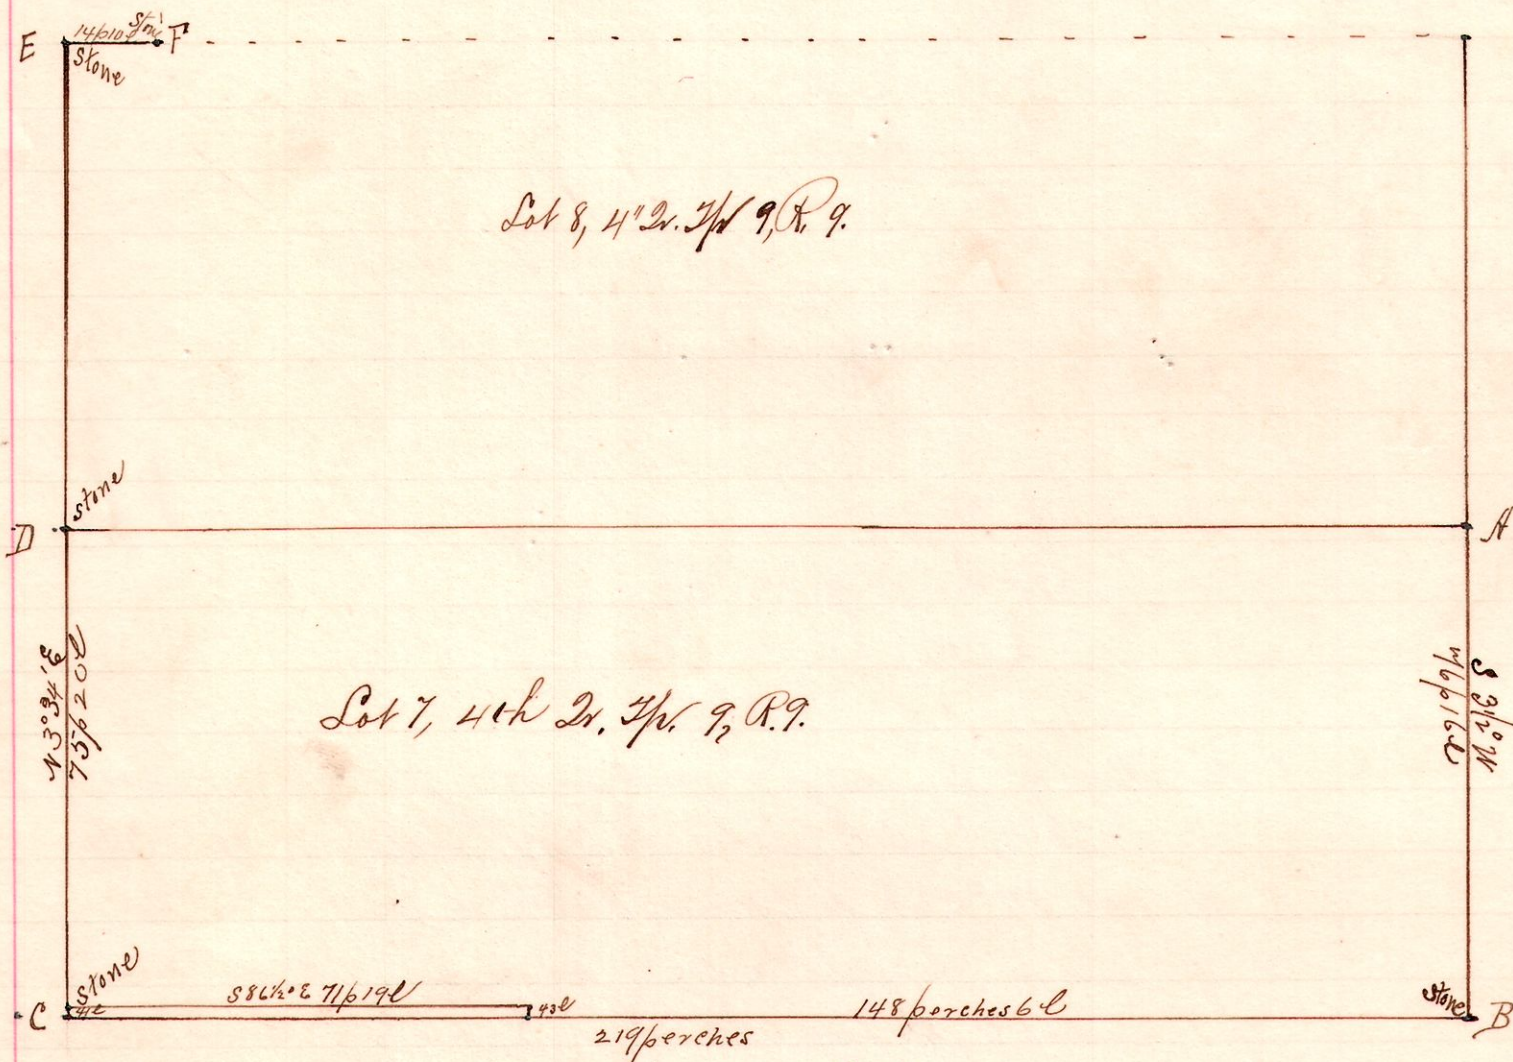 E 14p10l Stone F
Stone
Lot 8, 4" Qr. Tp 9, R. 9.
stone
D
A
N3°34'E
75p20l
Lot 7, 4th Qr. Tp. 9, R. 9.
S 3½° W
76p16l
Stone
S86½°E 71p19l
C 41l 43l
148 perches 6l
219 perches
Stone
B